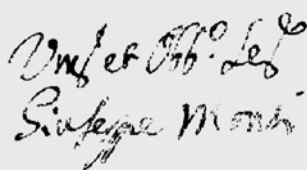 Um.s et Obb.o Ser.e
Giuseppe Monti